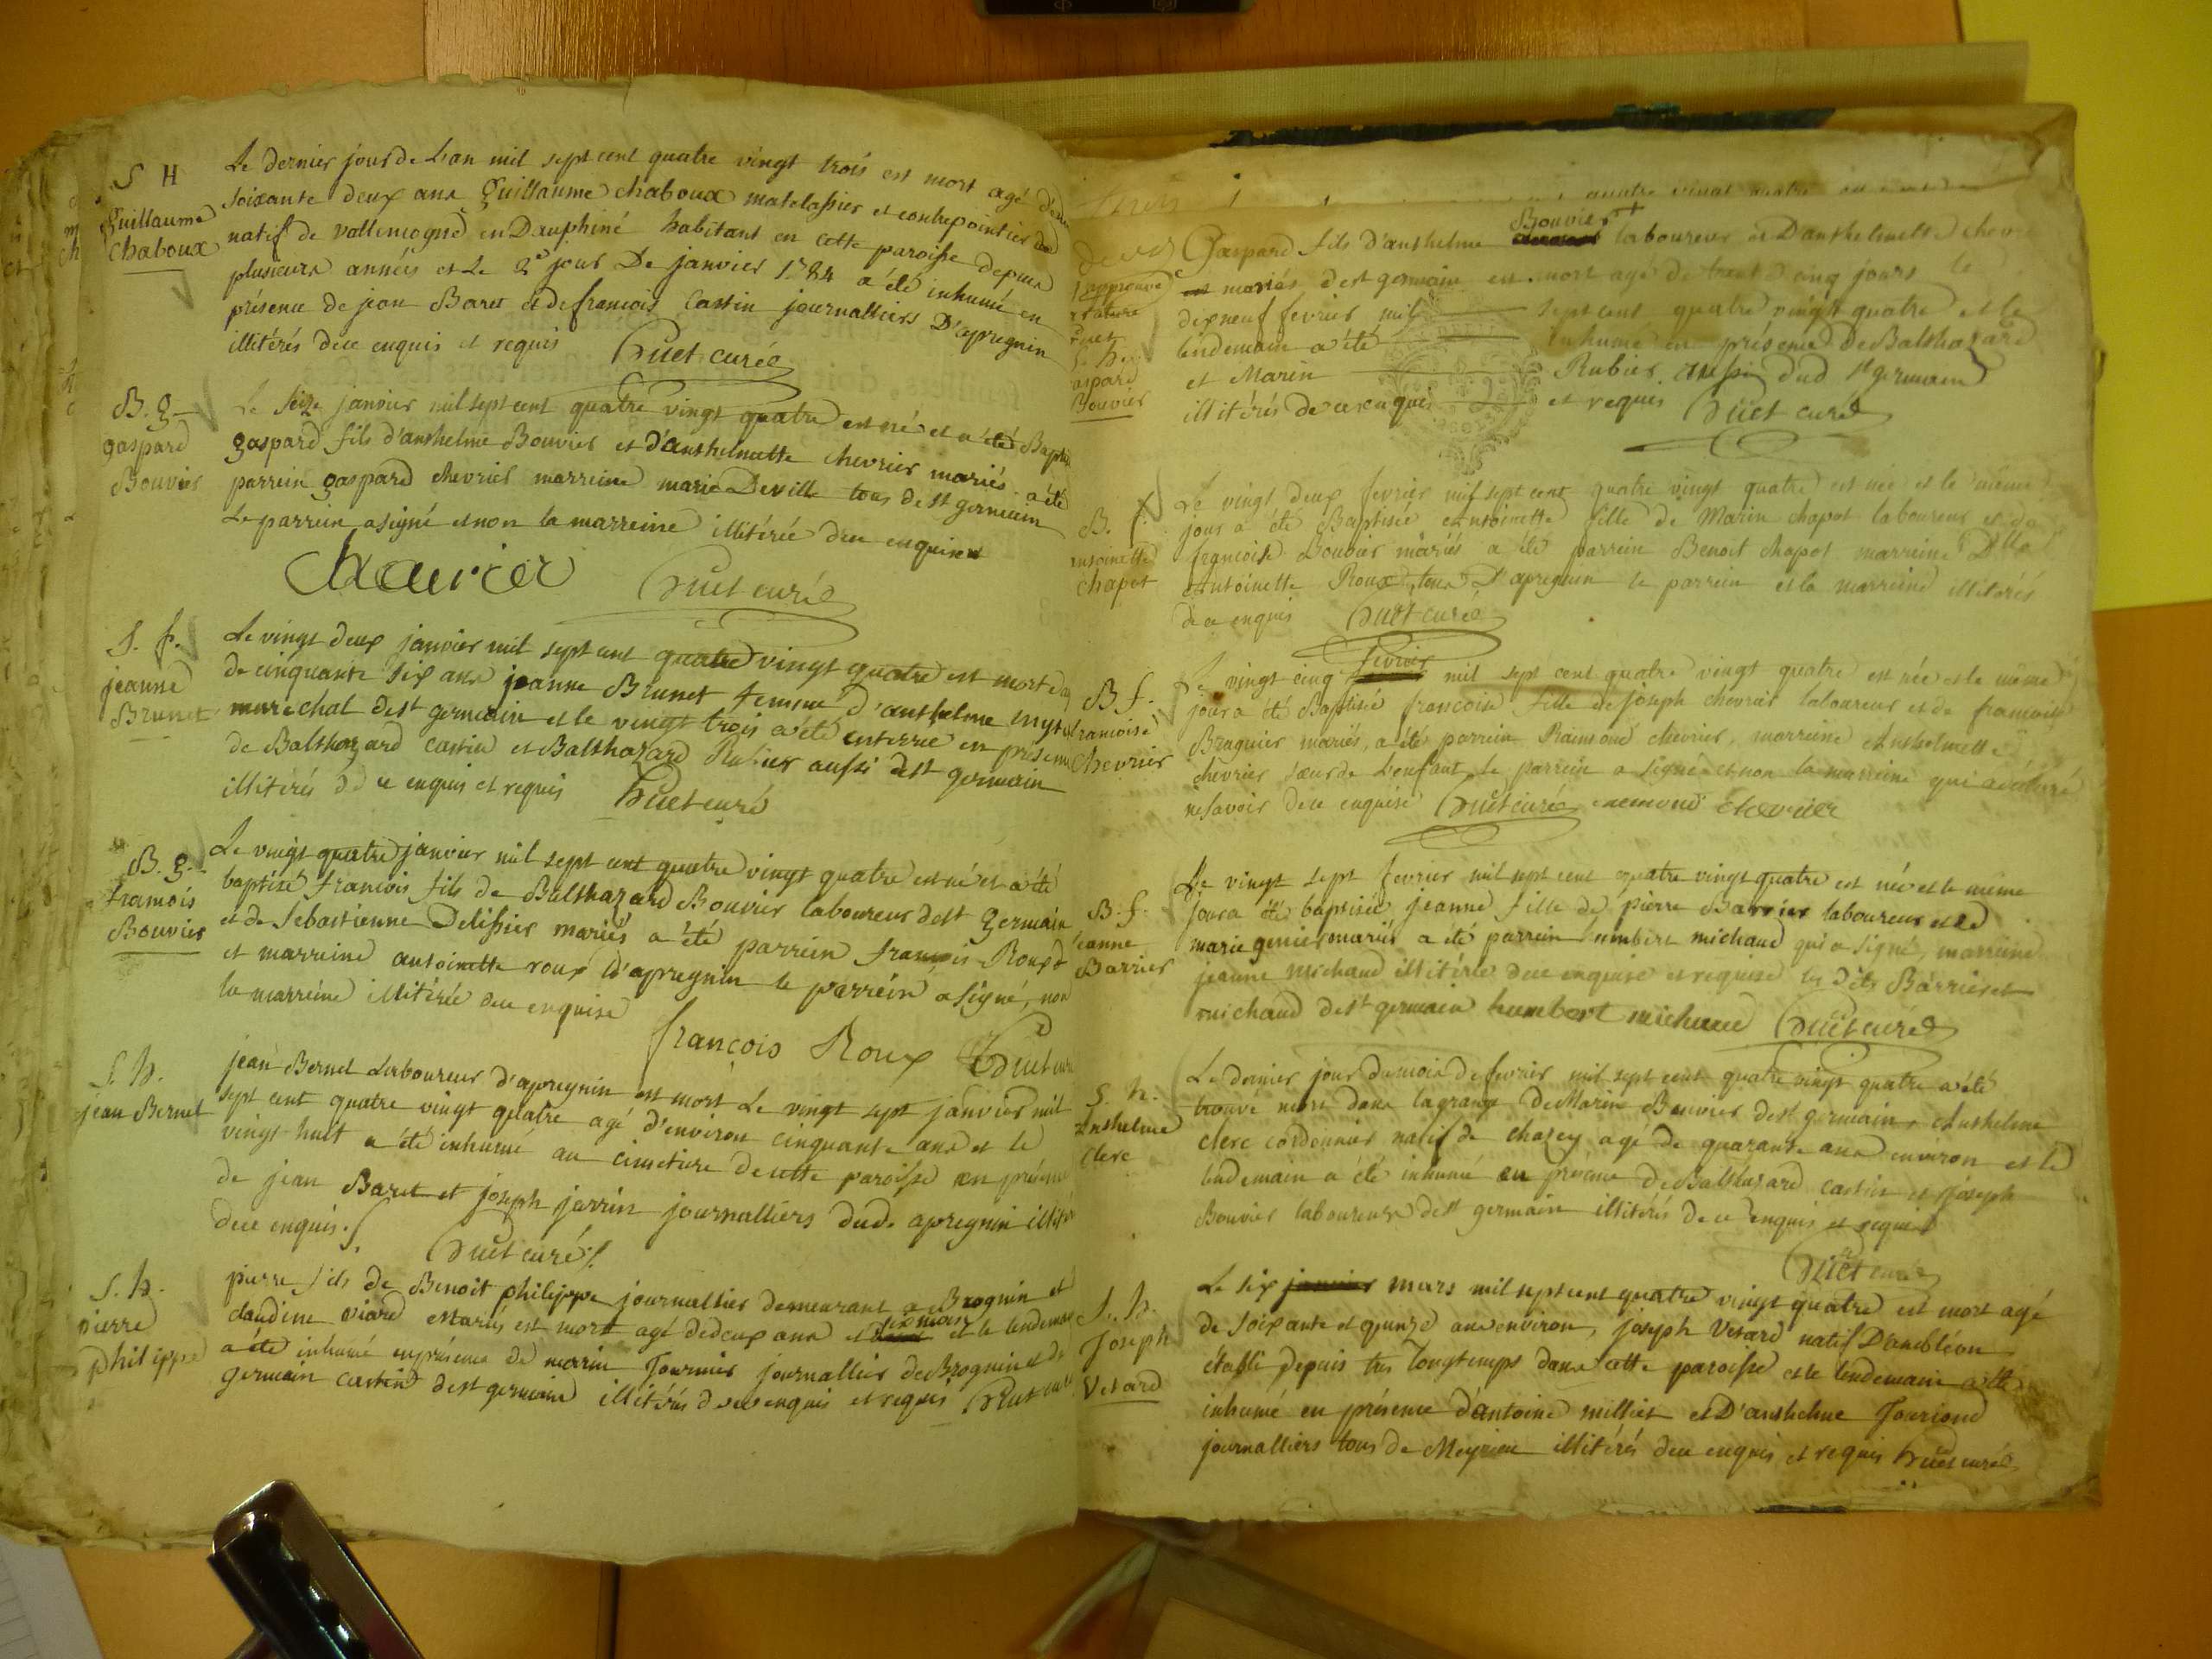 S H
Guillaume
Chaboux
Le dernier jour de L'an mil sept cent quatre vingt trois est mort agé
soixante deux ans Guillaume chaboux matelassier et contrepointier
natif de vallencogne en Dauphiné habitant en cette paroisse depuis
plusieurs années et Le 2e jour De janvier 1784 a été inhumé en
présence de jean Baret et de francois Castin journalliers D'apregnin
illitérés de ce enquis et requis Huet curé
B. g.
gaspard
Bouvier
Le seize janvier mil sept cent quatre vingt quatre est né et a été
gaspard fils d'anthelme Bouvier et d'anthelmette chevrier mariés a été
parrein gaspard chevrier marreine marie Deville tous de st germain
Le parrein a signé et non la marreine illitérée de ce enquise
Chavrier Huet curé
S. f.
jeanne
Brunet
Le vingt deux janvier mil sept cent quatre vingt quatre est morte
de cinquante six ans jeanne Brunet femme d'anthelme
marechal de st germain et le vingt trois a été enterrée en présence
de Balthazard Castin et Balthazard Rubier aussi de st germain
illitérés de ce enquis et requis Huet curé
B. g.
francois
Bouvier
Le vingt quatre janvier mil sept cent quatre vingt quatre est né et a été
baptisé francois fils de Balthazard Bouvier laboureur de st Germain
et de Sébastienne Delissier mariés a été parrein francois Roux
et marreine antoinette roux d'apregnin le parrein a signé, non
la marreine illitérée de ce enquise
francois Roux Huet
S. h.
jean Bernet
jean Bernet Laboureur d'apregnin est mort Le vingt sept janvier mil
sept cent quatre vingt quatre agé d'environ cinquante ans et le
vingt huit a été inhumé au cimetiere de cette paroisse en présence
de jean Baret et joseph jarrin journalliers dud. apregnin
de ce enquis.
Huet curé
S. h.
pierre
philippe
pierre fils de Benoit philippe journallier demeurant a Brognin et
claudine viard mariés est mort agé de deux ans et six mois et le lendemain
a été inhumé en présence de marin fournier journallier de Brognin et de
germain castin de st germain illitérés de ce enquis et requis Huet curé
quatre vingt quatre
Bouvier +
Gaspard fils d'anthelme laboureur et D'anthelmette
mariés de st germain est mort agé de trente cinq jours le
dixneuf fevrier mil sept cent quatre vingt quatre et le
lendemain a été inhumé en présence De Balthazard
et Marin Rubier aussi dud st germain
illitérés de ce enquis et requis Huet curé
approuvé
rature
Huet
S. h.
gaspard
Bouvier
B. f.
antoinette
chapot
Le vingt deux fevrier mil sept cent quatre vingt quatre est née et le même
jour a été Baptisée antoinette fille de Marin chapot laboureur et de
francoise Bouvier mariés a été parrein Benoit chapot marreine Dlle
Antoinette Roux, tous D'apregnin le parrein et la marreine illitérés
de ce enquis Huet curé
B f.
francoise
Chevrier
Le vingt cinq fevrier mil sept cent quatre vingt quatre est née et le même
jour a été Baptisée francoise fille de joseph chevrier laboureur et de francoise
Braguier mariés, a été parrein Raimond chevrier, marreine Anthelmette
chevrier soeur de L'enfant, le parrein a signé et non la marreine qui a déclaré
ne savoir de ce enquise Huet curé raemond chevrier
B. f.
jeanne
Barrier
Le vingt sept fevrier mil sept cent quatre vingt quatre est née et le même
jour a été baptisée jeanne fille de pierre Barrier laboureur et de
marie genier mariés a été parrein humbert michaud qui a signé, marreine
jeanne michaud illitérée de ce enquise et requise les dits Barrier et
michaud de st germain humbert michaud Huet curé
S. h.
Anthelme
Clerc
Le dernier jour du mois de fevrier mil sept cent quatre vingt quatre a été
trouvé mort dans la grange de Marin Bouvier de st germain, Anthelme
clerc cordonnier natif de chazey agé de quarante ans environ et le
lendemain a été inhumé en présence de Balthazard castin et joseph
Bouvier laboureurs de st germain illitérés de ce enquis et requis
Huet curé
S. h.
Joseph
Vetard
Le six mars mil sept cent quatre vingt quatre est mort agé
de soixante et quinze ans environ, joseph Vetard natif D'ambléon
établi depuis très longtemps dans cette paroisse et le lendemain a été
inhumé en présence d'antoine milliet et D'anthelme Jouriond
journalliers tous de Meyrieu illitérés de ce enquis et requis Huet curé